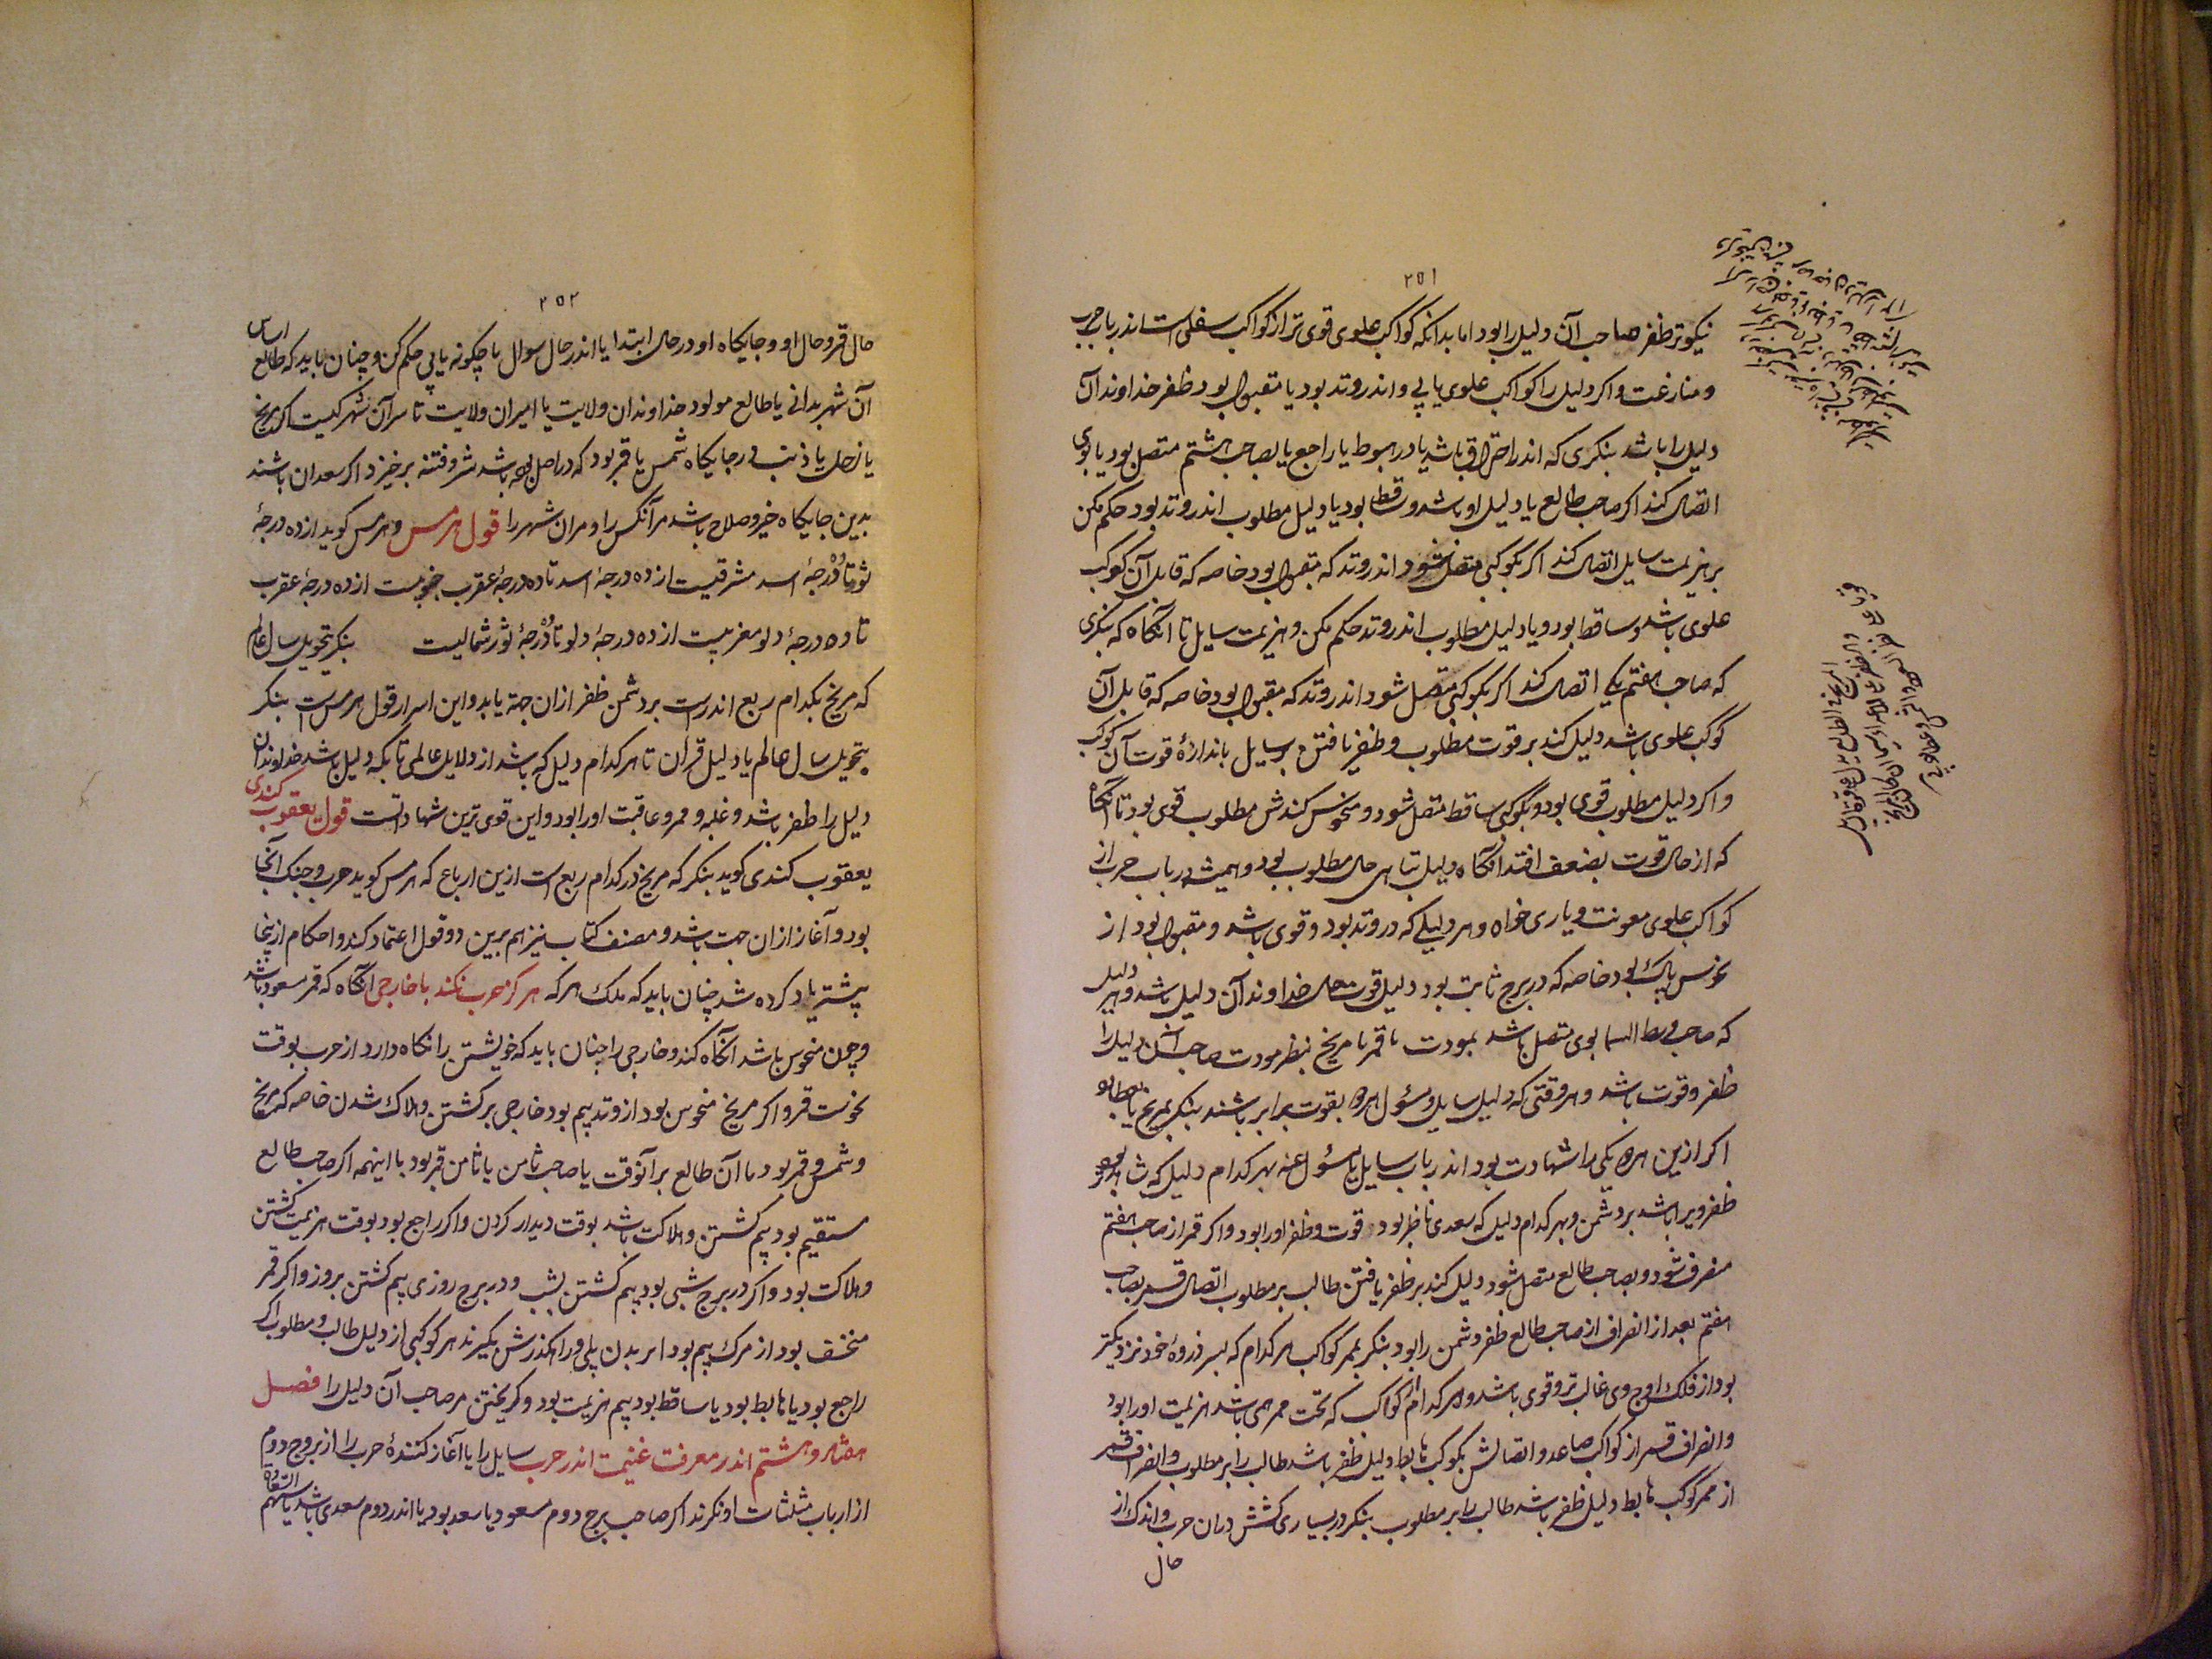 ۲۵۱
نیکوتر ظفر صاحب آن دلیل را بود اما بدانکه کواکب علوی قوی تر از کواکب سفلی است اندر باب حرب
و منازعت و اکر دلیل را کواکب علوی یابی و اندر وتد بود یا مقبول بود ظفر خداوند آن
دلیل را باشد بنکری که اندر احتراق باشد یا در هبوط یا راجع یا بصاحب هشتم متصل بود یا بوی
اتصال کند اکر صاحب طالع یا دلیل او باشد و ساقط بود یا دلیل مطلوب اندر وتد بود حکم مکن
بر هزیمت سایل اتصال کند اکر بکوکبی متصل شود اندر وتد که مقبول بود خاصه که قابل آن کوکب
علوی باشد و ساقط بود و یا دلیل مطلوب اندر وتد حکم مکن و هزیمت سایل تا آنکاه که بنکری
که صاحب هفتم بکی اتصال کند اکر بکوکبی متصل شود اندر وتد که مقبول بود خاصه که قابل آن
کوکب علوی باشد دلیل کند بر قوت مطلوب و ظفر یافتن بر سایل باندازهٔ قوت آن کوکب
و اکر دلیل مطلوب قوی بود و بکوکبی ساقط متصل شود و منحوس کندش مطلوب قوی بود تا آنکاه
که از حال قوت بضعف افتد آنکاه دلیل تباهی حال مطلوب بود و همیشه در باب حرب از
کواکب علوی معونت و یاری خواه و هر دلیلی که در وتد بود و قوی باشد و مقبول بود از
نحوس پاک بود خاصه که در برج ثابت بود دلیل قوت حال خداوند آن دلیل باشد و هر دلیل
که صاحب وسط السما بوی متصل باشد بمودت یا قمر یا مریخ بنظر مودت صاحب آن دلیل را
ظفر و قوت باشد و هر وقتی که دلیل سایل و مسؤل هردو بقوت برابر باشند بنکر بمریخ یا بعطارد
اکر ازین هردو یکی را شهادت بود اندر باب سایل یا مسؤل عنه بهر کدام دلیل که
ظفر ویرا باشد بر دشمن و بهر کدام دلیل که سعدی ناظر بود قوت و ظفر اورا بود و اکر قمر از صاحب هفتم
منصرف شود و بصاحب طالع متصل شود دلیل کند بر ظفر یافتن طالب بر مطلوب اتصال قمر بصاحب
هفتم بعد از انصراف از صاحب طالع ظفر دشمن را بود بنکر بممر کواکب هر کدام که بسر ذروهٔ خود نزدیکتر
بود از فلک اوج وی غالب تر و قوی باشد و هر کدام از کواکب که تحت ممر همی باشد هزیمت اورا بود
و انصراف قمر از کواکب صاعد و اتصالش بکوکب هابط دلیل ظفر باشد طالب را بر مطلوب و انصراف قمر
از ممر کوکب هابط دلیل ظفر باشد طالب را بر مطلوب بنکر در بسیاری کشش دران حرب و اندک از
حال
۲۵۲
حال قمر و حال او و جایکاه او در حال ابتدا یا اندر حال سوال تا چکونه یابی حکم کن و چنان باید که طالع اساس
آن شهر بدانی یا طالع مولود خداوندان ولایت یا امیران ولایت تا سر آن شهر کیست اکر مریخ
یا زحل یا ذنب در جایکاه شمس یا قمر بود که در اصل بوده باشد شر و فتنه برخیزد اکر سعدان باشند
بدین جایکاه خیر و صلاح باشد مر آنکس را و مران شهر را قول هرمس و هرمس کوید از ده درجهٔ
ثور تا ده درجهٔ اسد مشرقیست از ده درجهٔ اسد تا ده درجهٔ عقرب جنوبیست از ده درجهٔ عقرب
تا ده درجهٔ دلو مغربیست از ده درجهٔ دلو تا ده درجهٔ ثور شمالیست بنکر بتحویل سال عالم
که مریخ بکدام ربع اندرست بر دشمن ظفر ازان جهة یابد و این اسرار قول هرمس است بنکر
بتحویل سال عالم یا دلیل قران تا هر کدام دلیل که باشد از دلایل عالمی تا بکه دلیل باشد خداوند آن
دلیل را ظفر باشد و غلبه و ممر و عاقبت اورا بود و این قوی ترین شهادتست قول یعقوب کندی
یعقوب کندی کوید بنکر که مریخ در کدام ربع است ازین ارباع که هرمس کوید حرب و جنک آنجا
بود و آغاز ازان جهت باشد و مصنف کتاب نیز هم برین دو قول اعتماد کند و احکام ازینجا
پیشتر یاد کرده شد چنان باید که ملک هر که هرکز حرب نکند با خارجی آنکاه که قمر مسعود باشد
و چون منحوس باشد آنکاه کند و خارجی را چنان باید که خویشتن را نکاه دارد از حرب بوقت
نحوست قمر و اکر مریخ منحوس بود از وتد بیم بود خارجی بر کشتن و هلاک شدن خاصه که مریخ
و شمس و قمر بود با آن طالع برآنوقت یا صاحب ثامن یا ثامن قمر بود با اینهمه اکر صاحب طالع
مستقیم بود بیم کشتن و هلاکت باشد بوقت دیدار کردن و اکر راجع بود بوقت هزیمت کشتن
و هلاکت بود و اکر در برج شبی بود بیم کشتن بشب و در برج روزی بیم کشتن بروز و اکر قمر
منخسف بود از مرک بیم بود هر کوکبی از دلیل طالب و مطلوب اکر
راجع بود یا هابط بود یا ساقط بود بیم هزیمت بود و کریختن مر صاحب آن دلیل را فصل
هشتم اندر معرفت غنیمت اندر حرب سایل را یا آغاز کنندهٔ حرب را از برج دوم
از ارباب مثلثات او نکرند اکر صاحب برج دوم مسعود یا سعد بود یا اندر دوم سعدی باشد یا سهم السعاده